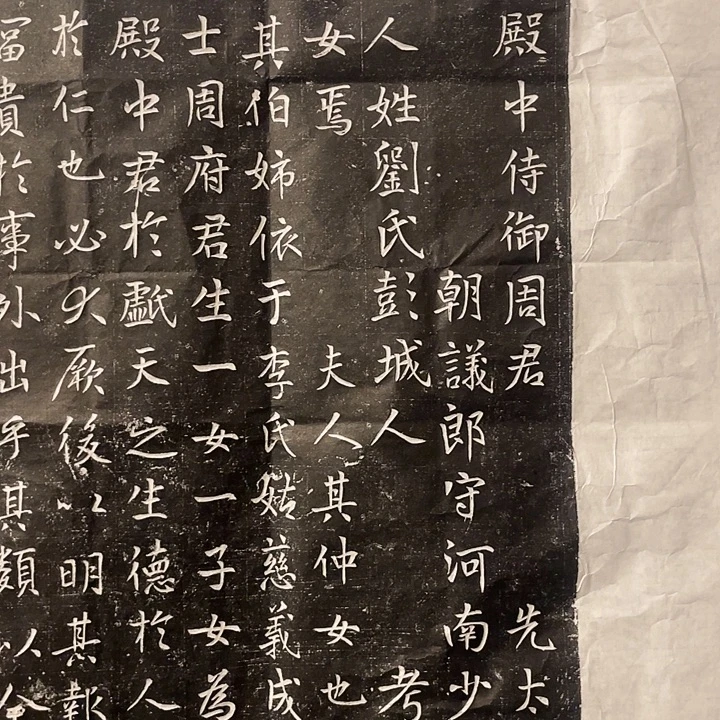 殿中侍御周君　先太
朝議郎守河南少
人姓劉氏彭城人　考
女焉　夫人其仲女也
其伯姊依于李氏姑慈義成
士周府君生一女一子女為
殿中君於戲天之生德於人
於仁也必大厥後以明其報
冨貴於事外出乎其類以